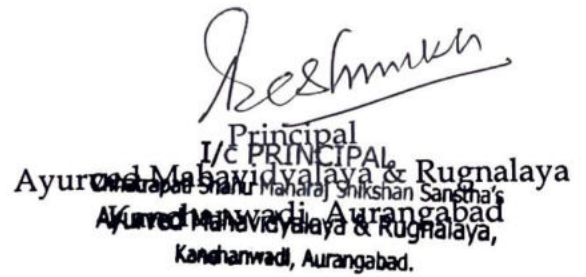 Deshmukh
Principal
I/c PRINCIPAL
Ayurved Mahavidyalaya & Rugnalaya
Chhatrapati Shahu Maharaj Shikshan Sanstha's
Kanchanwadi, Aurangabad
Ayurved Mahavidyalaya & Rugnalaya,
Kanchanwadi, Aurangabad.